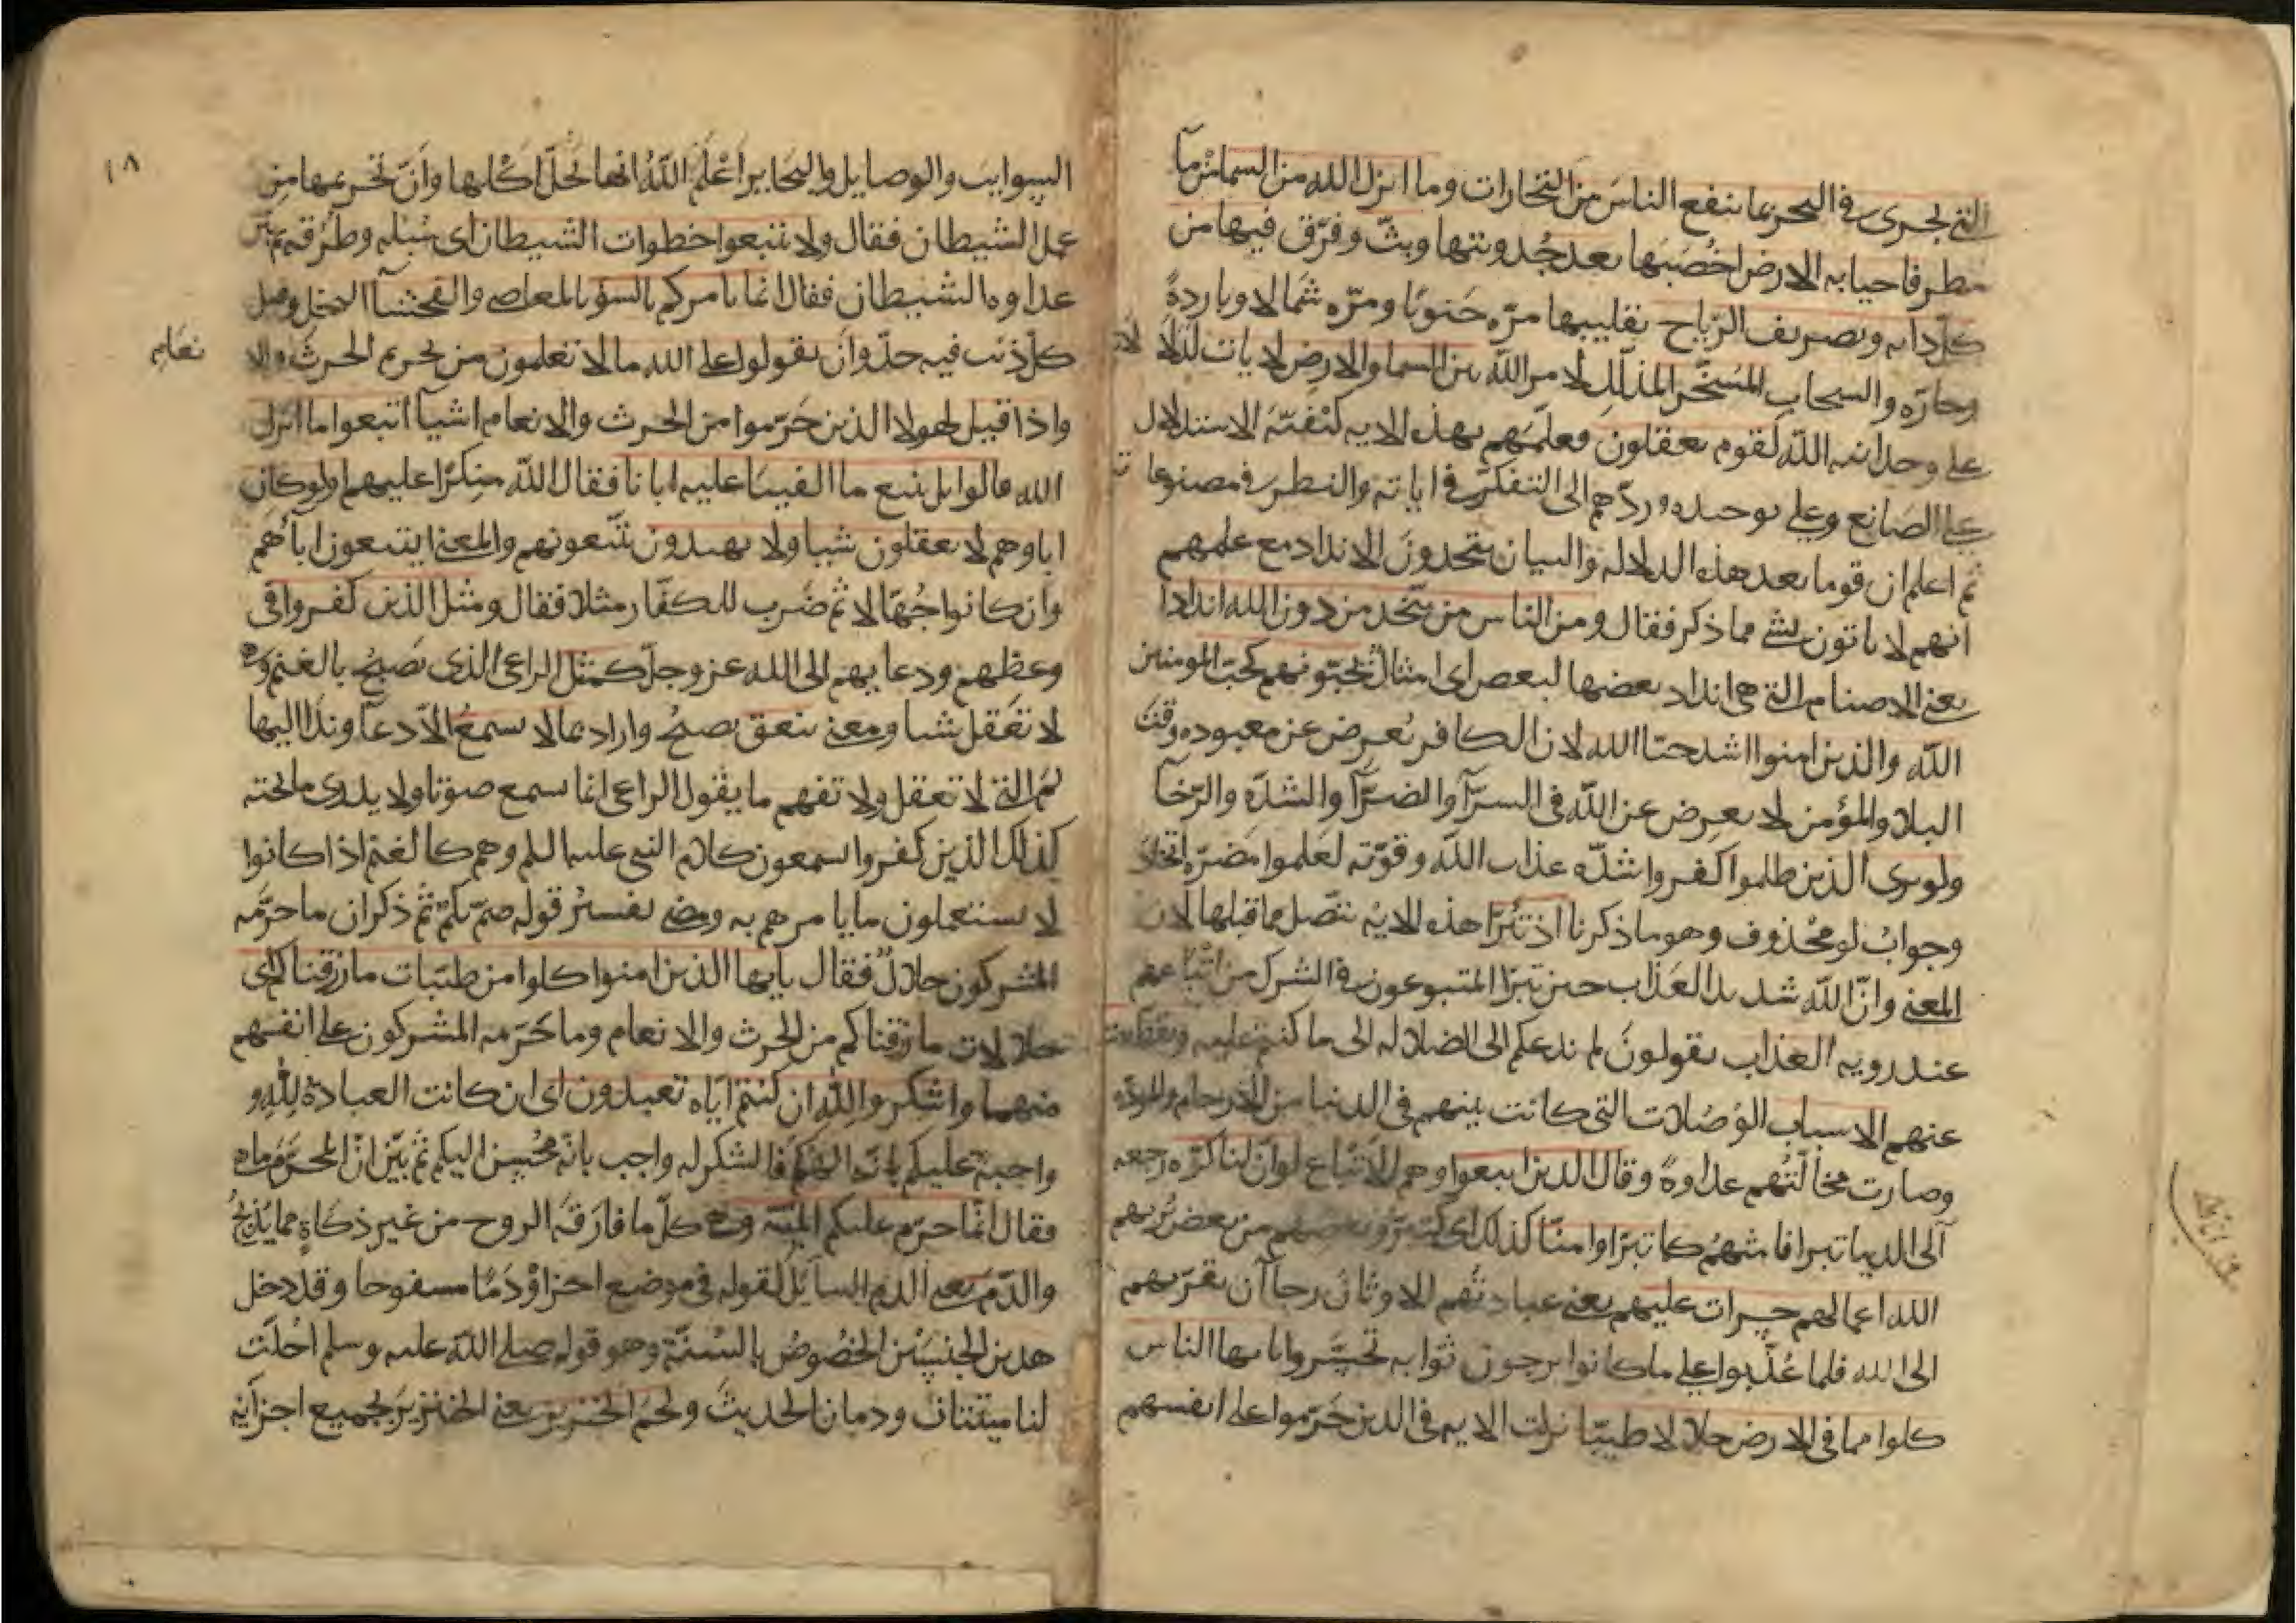 التي تجرى في البحر بما ينفع الناس من التجارات وما انزل الله من السما من مآ
مطر فاحيا به الارض اخصبها بعد جدوبتها وبث وفرق فيها من
كل دابه وتصريف الرياح تقليبها مره جنوبا ومره شمالا وباردة
وحارة والسحاب المسخر المذلل لامر الله بين السما والارض لايات لدلالات
على وحدانيه الله لقوم يعقلون فعلمهم بهذه الايه كيفية الاستدلال
على الصانع وعلى توحيده وردهم الى التفكر في اياته والنظر في مصنوعاته
ثم اعلم ان قوما بعد هذه الدلاله والبيان يتخذون الانداد مع علمهم
انهم لا ياتون بشي مما ذكر فقال ومن الناس من يتخذ من دون الله اندادا
يعني الاصنام التي هي انداد بعضها لبعض اي امثال يحبونهم كحب المومنين
الله والذين امنوا اشد حبا لله لان الكافر يعرض عن معبوده وقت
البلا والمؤمن لا يعرض عن الله في السرآ والضرآ والشده والرخآ
ولو يرى الذين ظلموا كفروا شدة عذاب الله وقوته لعلموا مضرة اتخاذ
وجواب لو محذوف وهو ما ذكرنا اذ تبرا هذه الايه تتصل بما قبلها لان
المعنى وان الله شديد العذاب حين تبرا المتبوعون في الشرك من اتباعهم
عند رويه العذاب يقولون لم ندعكم الى الضلاله الى ما كنتم عليه وتقطعت
عنهم الاسباب الوصلات التي كانت بينهم في الدنيا من الارحام والموده
وصارت مخالتهم عداوة وقال الذين اتبعوا وهم الاتباع لو ان لنا كره رجعه
الى الدنيا تبرانا منهم كما تبراوا منا كذلك اي كتبرؤ بعضهم من بعض يريهم
الله اعمالهم حسرات عليهم يعني عبادتهم الاوثان رجآ ان تقربهم
الى الله فلما عذبوا على ما كانوا يرجون ثوابه تحسروا يايها الناس
كلوا مما في الارض حلالا طيبا نزلت الايه في الذين حرموا على انفسهم
١٨
السوايب والوصايل والبحاير اعلم الله انها تحل اكلها وان تحريمها من
عمل الشيطان فقال ولا تتبعوا خطوات الشيطان اى سبله وطرقه ثم بين
عداوه الشيطان فقال انما يامركم بالسؤ بالمعاصي والفحشآ البخل وقيل
كل ذنب فيه حد وان تقولوا على الله ما لا تعلمون من تحريم الحرث والا
نعام
واذا قيل لهولا الذين حرموا من الحرث والانعام اشيآ اتبعوا ما انزل
الله قالوا بل نتبع ما الفينا عليه ابانا فقال الله منكرا عليهم اولو كان
اباوهم لا يعقلون شيا ولا يهتدون يتبعونهم والمعنى ايتبعون اباهم
وان كانوا جهالا ثم ضرب للكفار مثلا فقال ومثل الذين كفروا في
وعظهم ودعايهم الى الله عز وجل كمثل الراعى الذى يصيح بالغنم وهى
لا تعقل شيا ومعنى ينعق يصيح واراد بما لا يسمع الا دعآ وندا البهايم
التي لا تعقل ولا تفهم ما يقول الراعى انما تسمع صوتا ولا يدرى ما تحته
كذلك الذين كفروا يسمعون كلام النبي عليه السلم وهم كالغنم اذ كانوا
لا يستعملون ما يامرهم به ومضى تفسير قوله صم بكم ثم ذكر ان ما حرمه
المشركون حلال فقال يايها الذين امنوا كلوا من طيبات ما رزقناكم اى
حلالات ما رزقناكم من الحرث والانعام وما حرمه المشركون على انفسهم
منهما واشكروا لله ان كنتم اياه تعبدون اى ان كانت العبادة لله و
واجبة عليكم بانه الهكم فالشكر له واجب بانه محسن اليكم ثم بين ان المحرم ما هو
فقال انما حرم عليكم الميتة وهي كل ما فارقه الروح من غير ذكاة مما يذبح
والدم يعنى الدم السايل لقوله في موضع اخر او دما مسفوحا وقد دخل
هذين الجنسين الخصوص بالسنة وهو قوله صلى الله عليه وسلم احلت
لنا ميتتان ودمان الحديث ولحم الخنزير يعنى الخنزير بجميع اجزايه